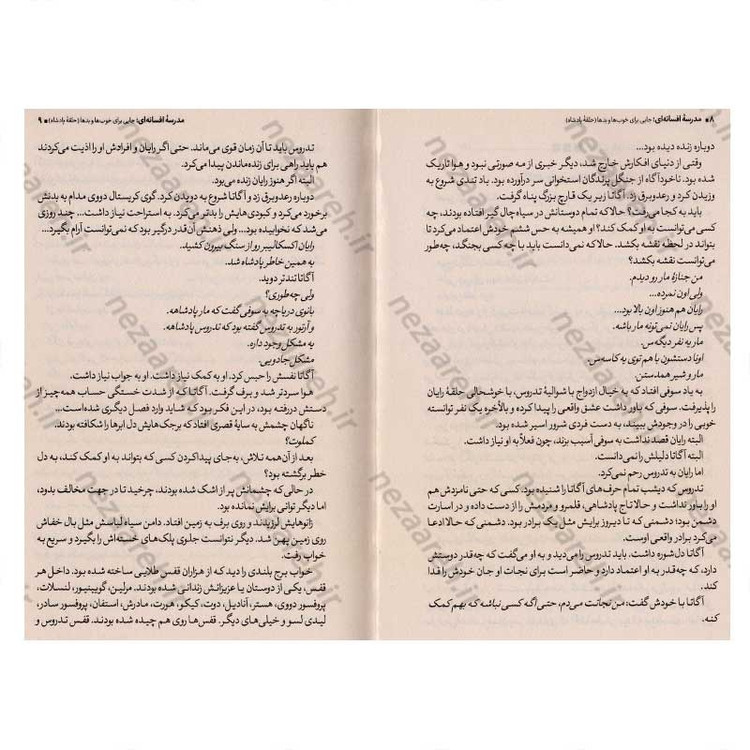 ۸ ■ مدرسهٔ افسانه‌ای: جایی برای خوب‌ها و بدها (حلقهٔ پادشاه)
دوباره زنده دیده بود...
وقتی از دنیای افکارش خارج شد، دیگر خبری از مه صورتی نبود و هوا تاریک
شده بود. ناخودآگاه از جنگل پرندگان استخوانی سر درآورده بود. باد تندی شروع به
وزیدن کرد و رعدوبرق زد. آگاتا زیر یک قارچ بزرگ پناه گرفت.
باید به کجا می‌رفت؟ حالا که تمام دوستانش در سیاه‌چال گیر افتاده بودند، چه
کسی می‌توانست به او کمک کند؟ او همیشه به حس ششم خودش اعتماد می‌کرد تا
بتواند در لحظه نقشه بکشد. حالا که نمی‌دانست باید با چه کسی بجنگد، چه‌طور
می‌توانست نقشه بکشد؟
من جنازهٔ مار رو دیدم.
ولی اون نمرده...
رایان هم هنوز اون بالا بود...
پس رایان نمی‌تونه مار باشه.
مار یه نفر دیگه‌س.
اونا دستشون با هم توی یه کاسه‌س.
مار و شیر همدستن.
به یاد سوفی افتاد که به خیال ازدواج با شوالیهٔ تدروس، با خوشحالی حلقهٔ رایان
را پذیرفت. سوفی که باور داشت عشق واقعی را پیدا کرده و بالأخره یک نفر توانسته
خوبی را در وجودش ببیند، به دست فردی شرور اسیر شده بود.
البته رایان قصد نداشت به سوفی آسیب بزند، چون فعلاً به او نیاز داشت.
البته آگاتا دلیلش را نمی‌دانست.
اما رایان به تدروس رحم نمی‌کرد.
تدروس که دیشب تمام حرف‌های آگاتا را شنیده بود. کسی که حتی نامزدش هم
او را باور نداشت و حالا تاج پادشاهی، قلمرو و مردمش را از دست داده و در اسارت
دشمن بود؛ دشمنی که تا دیروز برایش مثل یک برادر بود. دشمنی که حالا ادعا
می‌کرد برادر واقعی اوست.
آگاتا دل‌شوره داشت. باید تدروس را می‌دید و به او می‌گفت که چه‌قدر دوستش
دارد، که چه‌قدر به او اعتماد دارد و حاضر است برای نجات او جان خودش را فدا
کند.
آگاتا با خودش گفت: من نجاتت می‌دم، حتی اگه کسی نباشه که بهم کمک
کنه.
مدرسهٔ افسانه‌ای: جایی برای خوب‌ها و بدها (حلقهٔ پادشاه) ■ ۹
تدروس باید تا آن زمان قوی می‌ماند. حتی اگر رایان و افرادش او را اذیت می‌کردند
هم باید راهی برای زنده‌ماندن پیدا می‌کرد.
البته اگر هنوز رایان زنده می‌بود.
دوباره رعدوبرق زد و آگاتا شروع به دویدن کرد. گوی کریستال دووی مدام به بدنش
برخورد می‌کرد و کبودی‌هایش را بدتر می‌کرد. به استراحت نیاز داشت... چند روزی
می‌شد که نخوابیده بود... ولی ذهنش آن‌قدر درگیر بود که نمی‌توانست آرام بگیرد...
رایان اکسکالیبر رو از سنگ بیرون کشید.
به همین خاطر پادشاه شد.
آگاتا تندتر دوید.
ولی چه‌طوری؟
بانوی دریاچه به سوفی گفت که مار پادشاهه.
و آرتور به تدروس گفته بود که تدروس پادشاهه.
یه مشکل وجود داره.
مشکل جادویی.
آگاتا نفسش را حبس کرد. او به کمک نیاز داشت. او به جواب نیاز داشت.
هوا سردتر شد و برف گرفت. آگاتا که از شدت خستگی حساب همه‌چیز از
دستش دررفته بود، در این فکر بود که شاید وارد فصل دیگری شده‌است...
ناگهان چشمش به سایهٔ قصری افتاد که برجک‌هایش دل ابرها را شکافته بودند.
کملوت؟
بعد از آن همه تلاش، به‌جای پیداکردن کسی که بتواند به او کمک کند، به دل
خطر برگشته بود؟
در حالی که چشمانش پر از اشک شده بودند، چرخید تا در جهت مخالف بدود،
اما دیگر توانی برایش نمانده بود.
زانوهایش لرزیدند و روی برف به زمین افتاد. دامن سیاه لباسش مثل بال خفاش
روی زمین پهن شد. دیگر نتوانست جلوی پلک‌های خسته‌اش را بگیرد و سریع به
خواب رفت.
خواب برج بلندی را دید که از هزاران قفس طلایی ساخته شده بود. داخل هر
قفس، یکی از دوستان یا عزیزانش زندانی شده بودند. مرلین، گویینیور، لنسلات،
پروفسور دووی، هستر، آنادیل، دوت، کیکو، هورت، مادرش، استفان، پروفسور سادر،
لیدی لسو و خیلی‌های دیگر. قفس‌ها روی هم چیده شده بودند. قفس تدروس و
nezaareh.ir